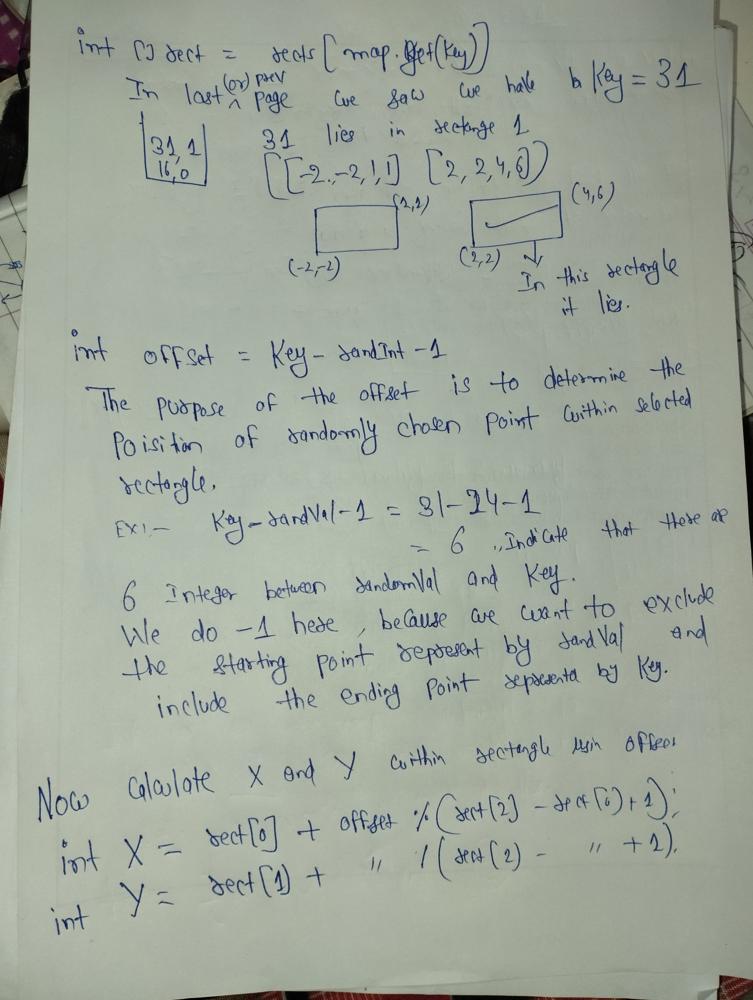 int [] rect = rects[map.get(Key)]
In last (or) prev page we saw we have a Key = 31
31 lies in rectange 1
31, 1
16, 0
[[-2,-2,1,1] [2, 2, 4, 6]]
(1,1)
(4,6)
(-2,-2)
(2,2)
In this rectangle
it lies.
int offset = Key - randInt - 1
The purpose of the offset is to determine the
Poisition of randomly chosen point within selected
rectangle.
EX:- Key - randVal - 1 = 31-24-1
= 6 ,, Indicate that there are
6 Integer between randomVal and Key.
We do -1 here, because we want to exclude
the starting point represent by randVal and
include the ending point represents by Key.
Now Calculate X and Y within rectangle usin offset
int X = rect[0] + offset % (rect[2] - rect[0] + 1);
int Y = rect[1] + " / (rect[2] - " + 1).